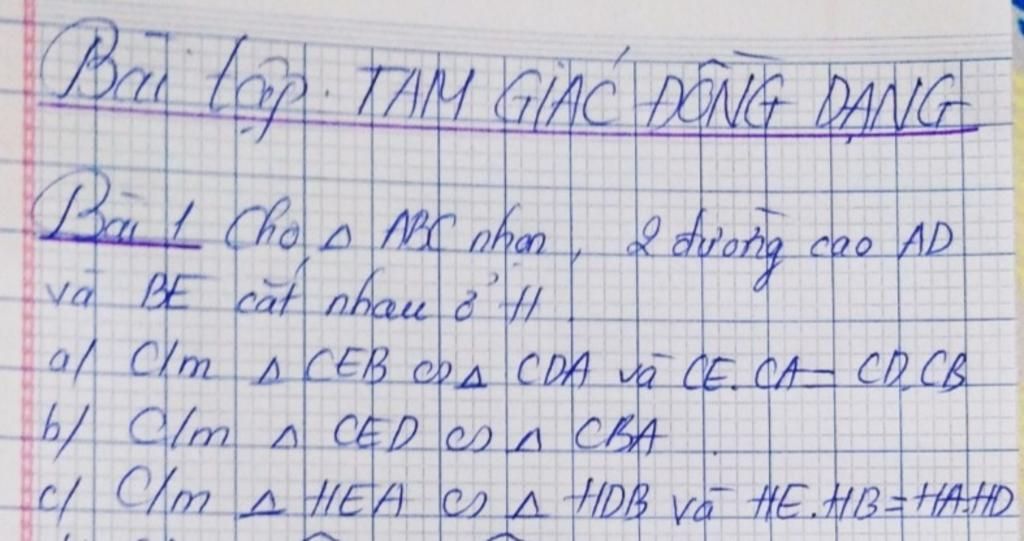 Bài tập. TAM GIÁC ĐỒNG DẠNG
Bài 1 Cho △ ABC nhọn, 2 đường cao AD
và BE cắt nhau ở H
a/ C/m △ CEB ∽ △ CDA và CE.CA = CD.CB
b/ C/m △ CED ∽ △ CBA
c/ C/m △ HEA ∽ △ HDB và HE.HB = HA.HD